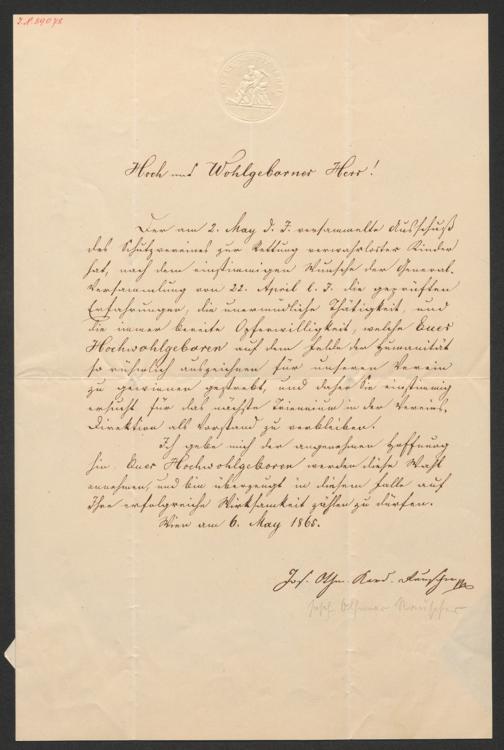 I.N. 89078
Hoch und Wohlgeborner Herr!
Der am 2. May d. J. versammelte Ausschuß
des Schutzvereines zur Rettung verwahrloster Kinder
hat, nach dem einstimmigen Wunsche der General-
Versammlung von 22. April l. J. die geprüften
Erfahrungen, die unermüdliche Thätigkeit, und
die immer bereite Opferwilligkeit, welche Euer
Hochwohlgeboren auf dem Felde der Humanität
so rühmlich auszeichnen für unseren Verein
zu gewinnen gestrebt, und daher Sie einstimmig
ersucht für das nächste Triennium in der Vereins,
Direktion als Vorstand zu verbleiben.
Ich gebe mich der angenehmen Hoffnung
hin Euer Hochwohlgeboren werden diese Wahl
annehmen, und bin überzeugt in diesem Falle auf
Ihre erfolgreiche Wirksamkeit zählen zu dürfen.
Wien am 6. May 1865.
Jos. Othm. Kard. Rauscher
Josef Othmar Rauscher